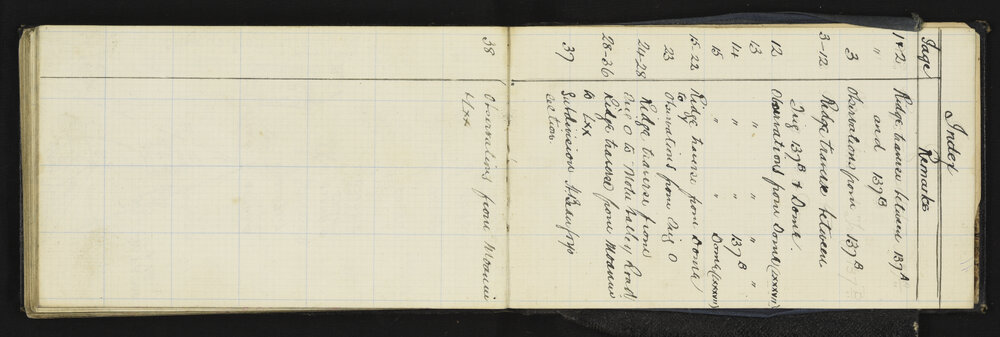 Index
Page Remarks
1+2 Ridge traverse between 137A
" and 137B
3 Observations from 137B
3-12 Ridge traverse between
Trig 137B + Dome
12 Observations from Dome (LXXXVII)
13 " " "
14 " " 137B
15 " " Dome (LXXXVII)
15-22 Ridge traverse from Dome
to
23 Observations from Trig O
24-28 Ridge traverse from
Trig O to Motu Valley Road
28-36 Ridge traverse from Moanui
to LXX
37 Subdivision
section
38 Observations from Moanui
+ LXX